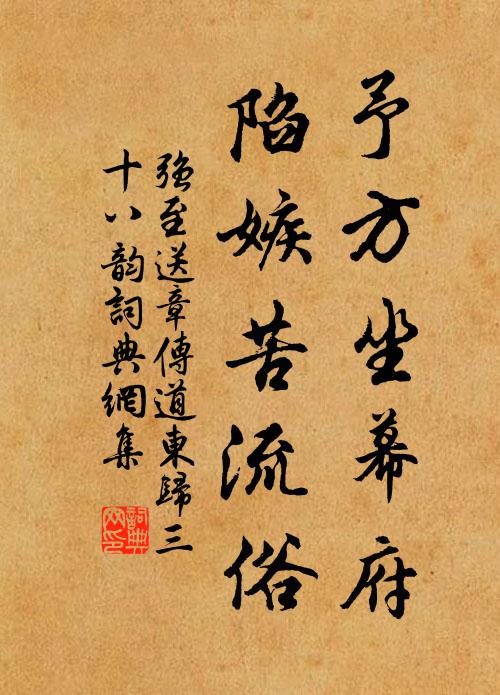 予方坐幕府
陷嫉苦流俗
強至送章傳道東歸三
十八韵詞典網集